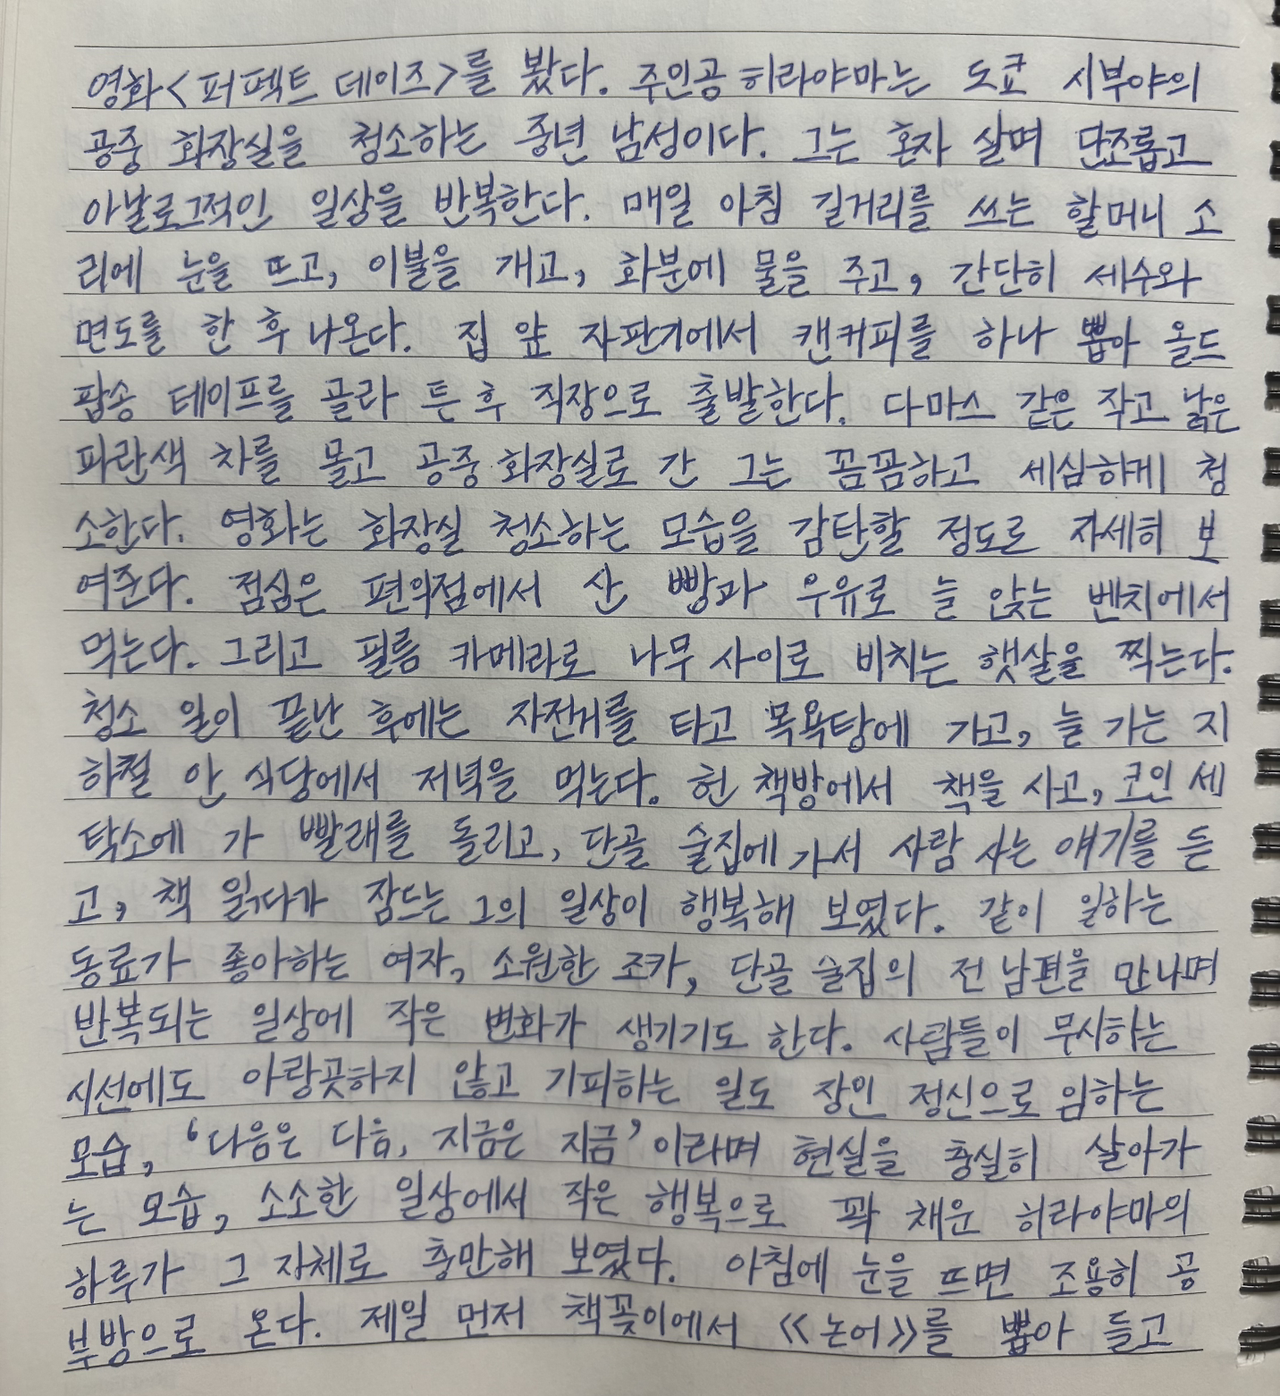 영화<퍼펙트 데이즈>를 봤다. 주인공 히라야마는 도쿄 시부야의
공중 화장실을 청소하는 중년 남성이다. 그는 혼자 살며 단조롭고
아날로그적인 일상을 반복한다. 매일 아침 길거리를 쓰는 할머니 소
리에 눈을 뜨고, 이불을 개고, 화분에 물을 주고, 간단히 세수와
면도를 한 후 나온다. 집 앞 자판기에서 캔커피를 하나 뽑아 올드
팝송 테이프를 골라 튼 후 직장으로 출발한다. 다마스 같은 작고 낡은
파란색 차를 몰고 공중 화장실로 간 그는 꼼꼼하고 세심하게 청
소한다. 영화는 화장실 청소하는 모습을 감탄할 정도로 자세히 보
여준다. 점심은 편의점에서 산 빵과 우유로 늘 앉는 벤치에서
먹는다. 그리고 필름 카메라로 나무 사이로 비치는 햇살을 찍는다.
청소 일이 끝난 후에는 자전거를 타고 목욕탕에 가고, 늘 가는 지
하철 안 식당에서 저녁을 먹는다. 헌 책방에서 책을 사고, 코인 세
탁소에 가 빨래를 돌리고, 단골 술집에 가서 사람 사는 얘기를 듣
고, 책 읽다가 잠드는 그의 일상이 행복해 보였다. 같이 일하는
동료가 좋아하는 여자, 소원한 조카, 단골 술집의 전 남편을 만나며
반복되는 일상에 작은 변화가 생기기도 한다. 사람들이 무시하는
시선에도 아랑곳하지 않고 기피하는 일도 장인 정신으로 임하는
모습, ‘다음은 다음, 지금은 지금’이라며 현실을 충실히 살아가
는 모습, 소소한 일상에서 작은 행복으로 꽉 채운 히라야마의
하루가 그 자체로 충만해 보였다. 아침에 눈을 뜨면 조용히 공
부방으로 온다. 제일 먼저 책꽂이에서 《논어》를 뽑아 들고